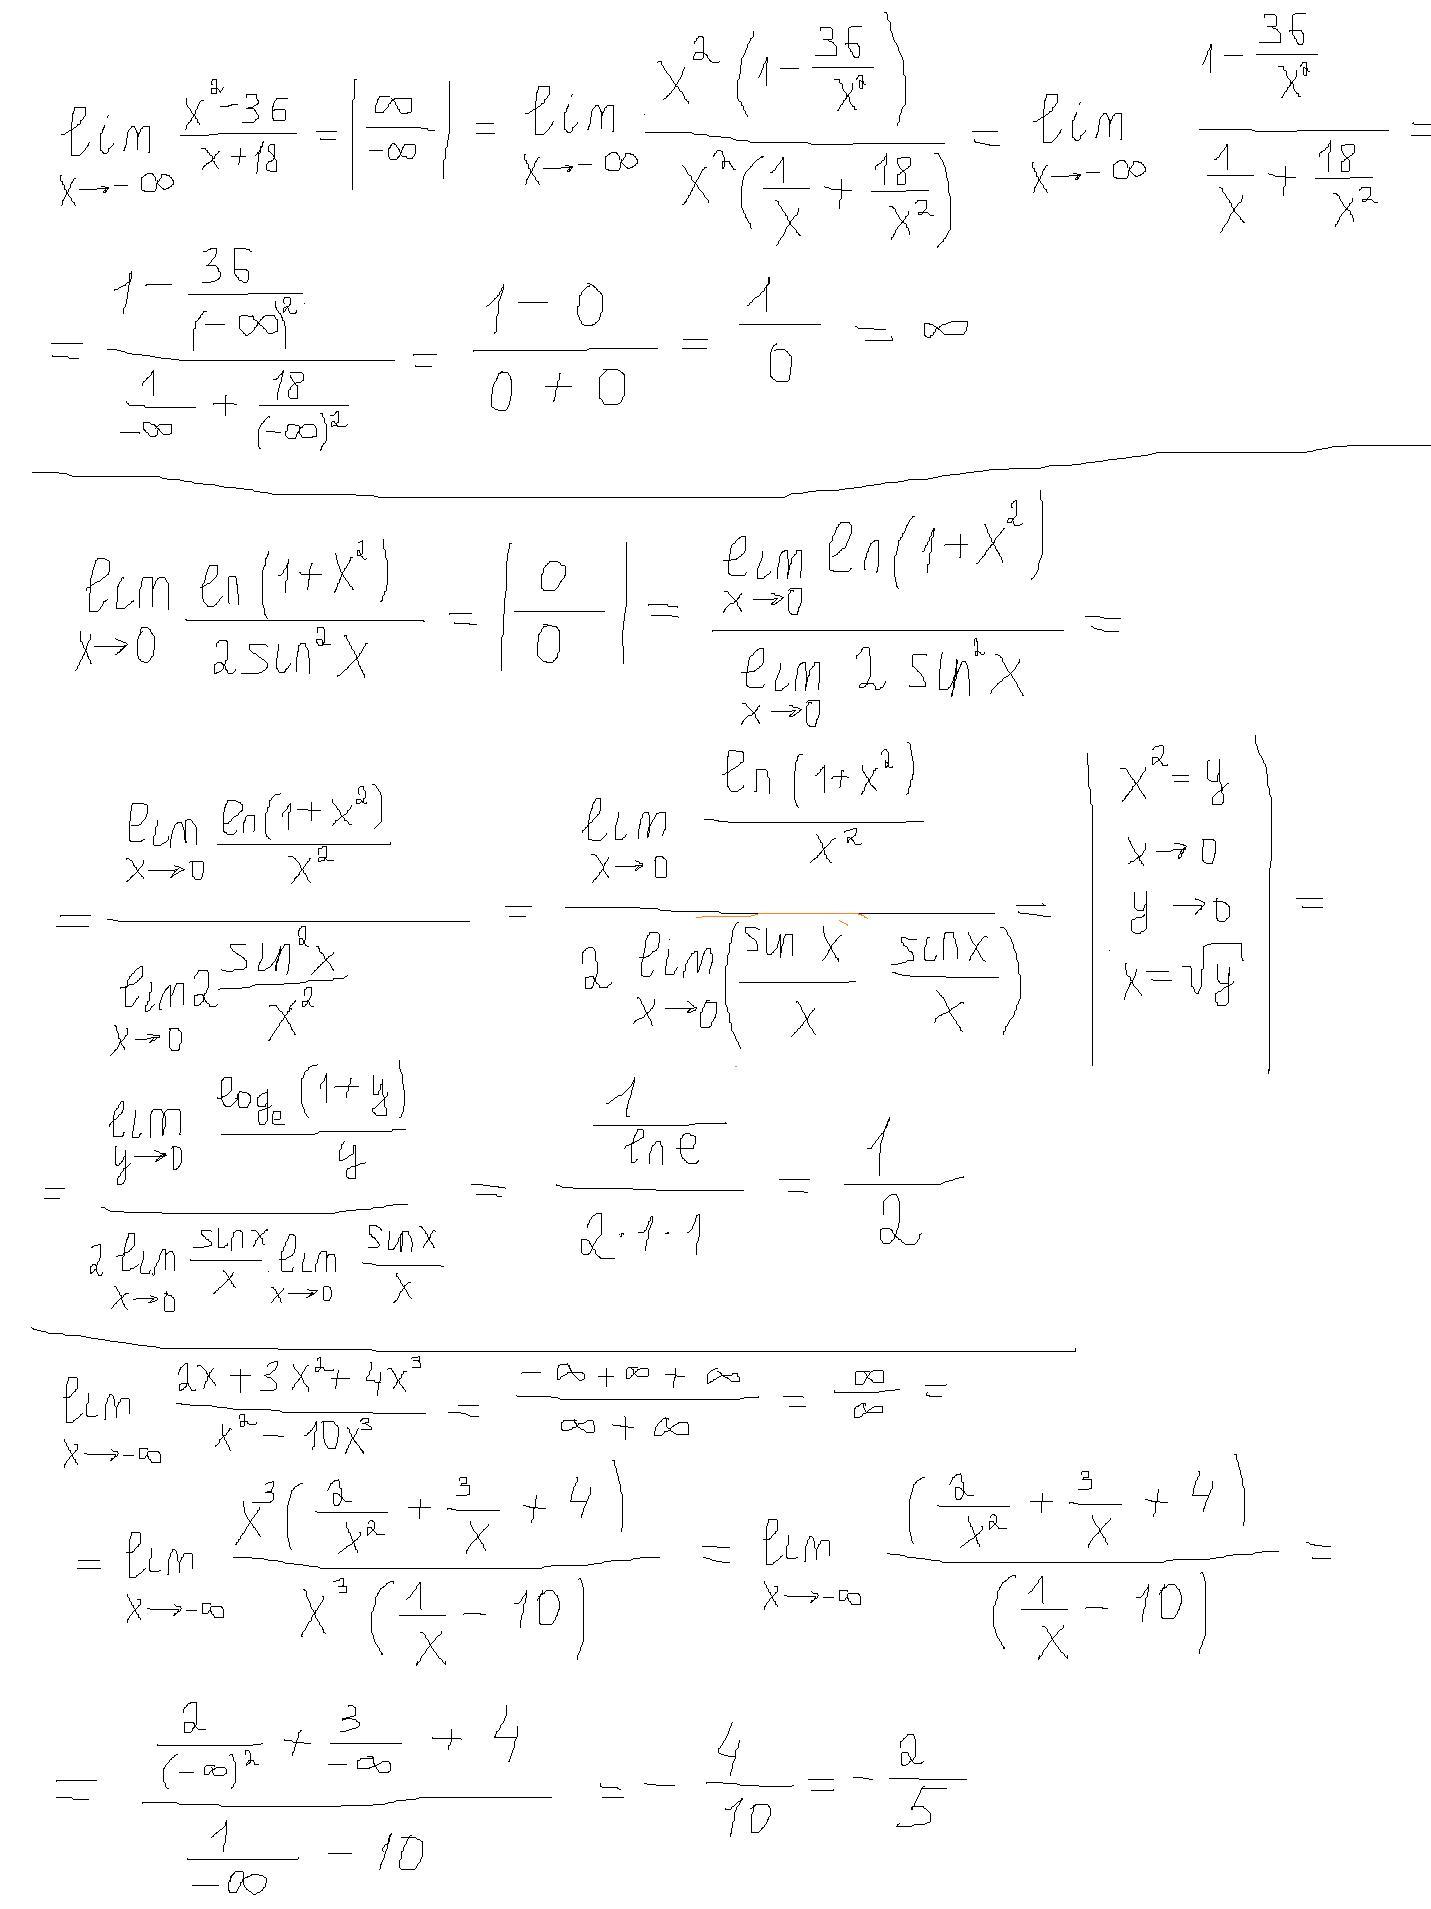 lim x→-∞ (x²-36)/(x+18) = |∞/-∞| = lim x→-∞ (x²(1-36/x²))/(x²(1/x+18/x²)) = lim x→-∞ (1-36/x²)/(1/x+18/x²) =
= (1-36/(-∞)²)/(1/-∞+18/(-∞)²) = (1-0)/(0+0) = 1/0 = ∞
lim x→0 ln(1+x²)/(2sin²x) = |0/0| = (lim x→0 ln(1+x²))/(lim x→0 2sin²x) =
= (lim x→0 ln(1+x²)/x²)/(lim x→0 2 sin²x/x²) = (lim x→0 ln(1+x²)/x²)/(2 lim x→0 (sin x/x sin x/x)) = |x²=y x→0 y→0 x=√y| =
= (lim y→0 logₑ(1+y)/y)/(2 lim x→0 sin x/x · lim x→0 sin x/x) = (1/ln e)/(2·1·1) = 1/2
lim x→-∞ (2x+3x²+4x³)/(x²-10x³) = (-∞+∞+∞)/(∞+∞) = ∞/∞ =
= lim x→-∞ (x³(2/x²+3/x+4))/(x³(1/x-10)) = lim x→-∞ (2/x²+3/x+4)/(1/x-10) =
= (2/(-∞)²+3/-∞+4)/(1/-∞-10) = -4/10 = -2/5